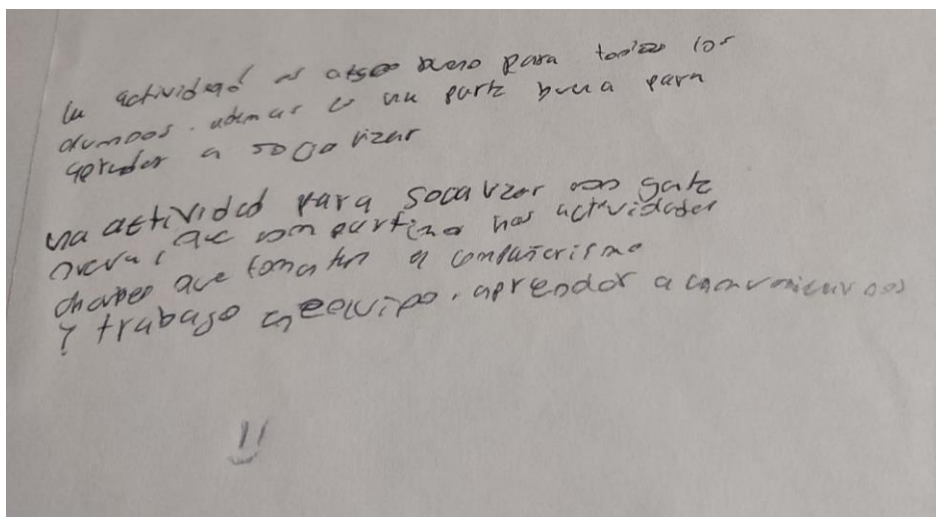 la actividad es algo bueno para todos los
alumnos. ademas es una parte buena para
aprender a socializar
una actividad para socalizar con gente
nueva, que compartimos mas actividades
que fomenten el compañerismo
y trabajo en equipo. aprender a comunicarnos